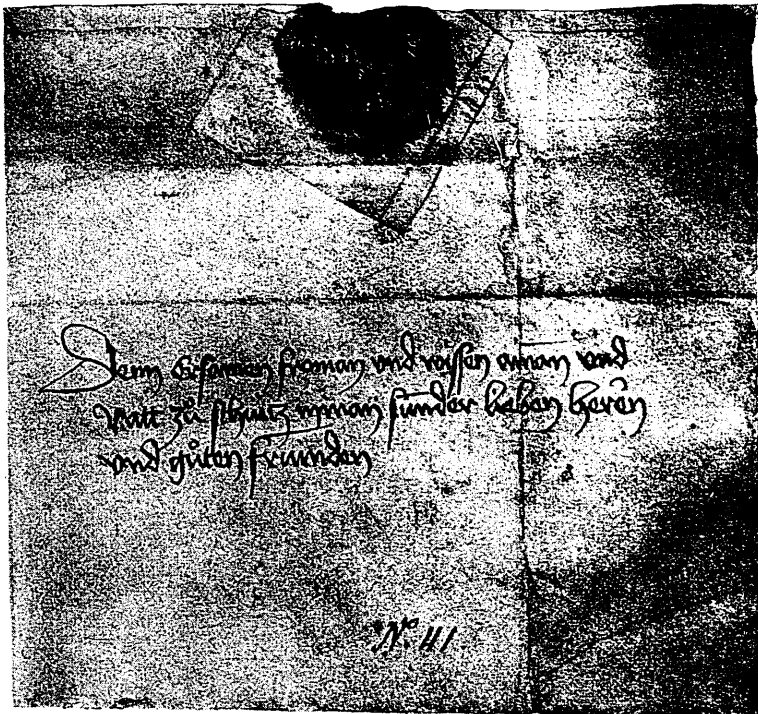 Denn Ersamen froman und wyssen aman und
Ratt zů schwitz mynan sunder lieben heren
und gůten frúnden
No 41